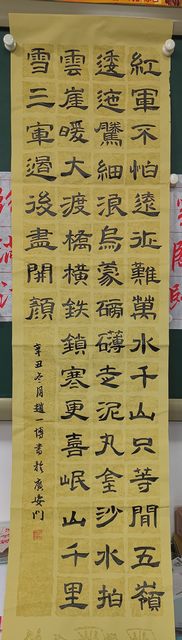 紅軍不怕遠征難萬水千山只等閒五嶺
逶迤騰細浪烏蒙磅礴走泥丸金沙水拍
雲崖暖大渡橋橫鉄鎖寒更喜岷山千里
雪三軍過後盡開顏
辛丑冬月趙一博書於廣安門